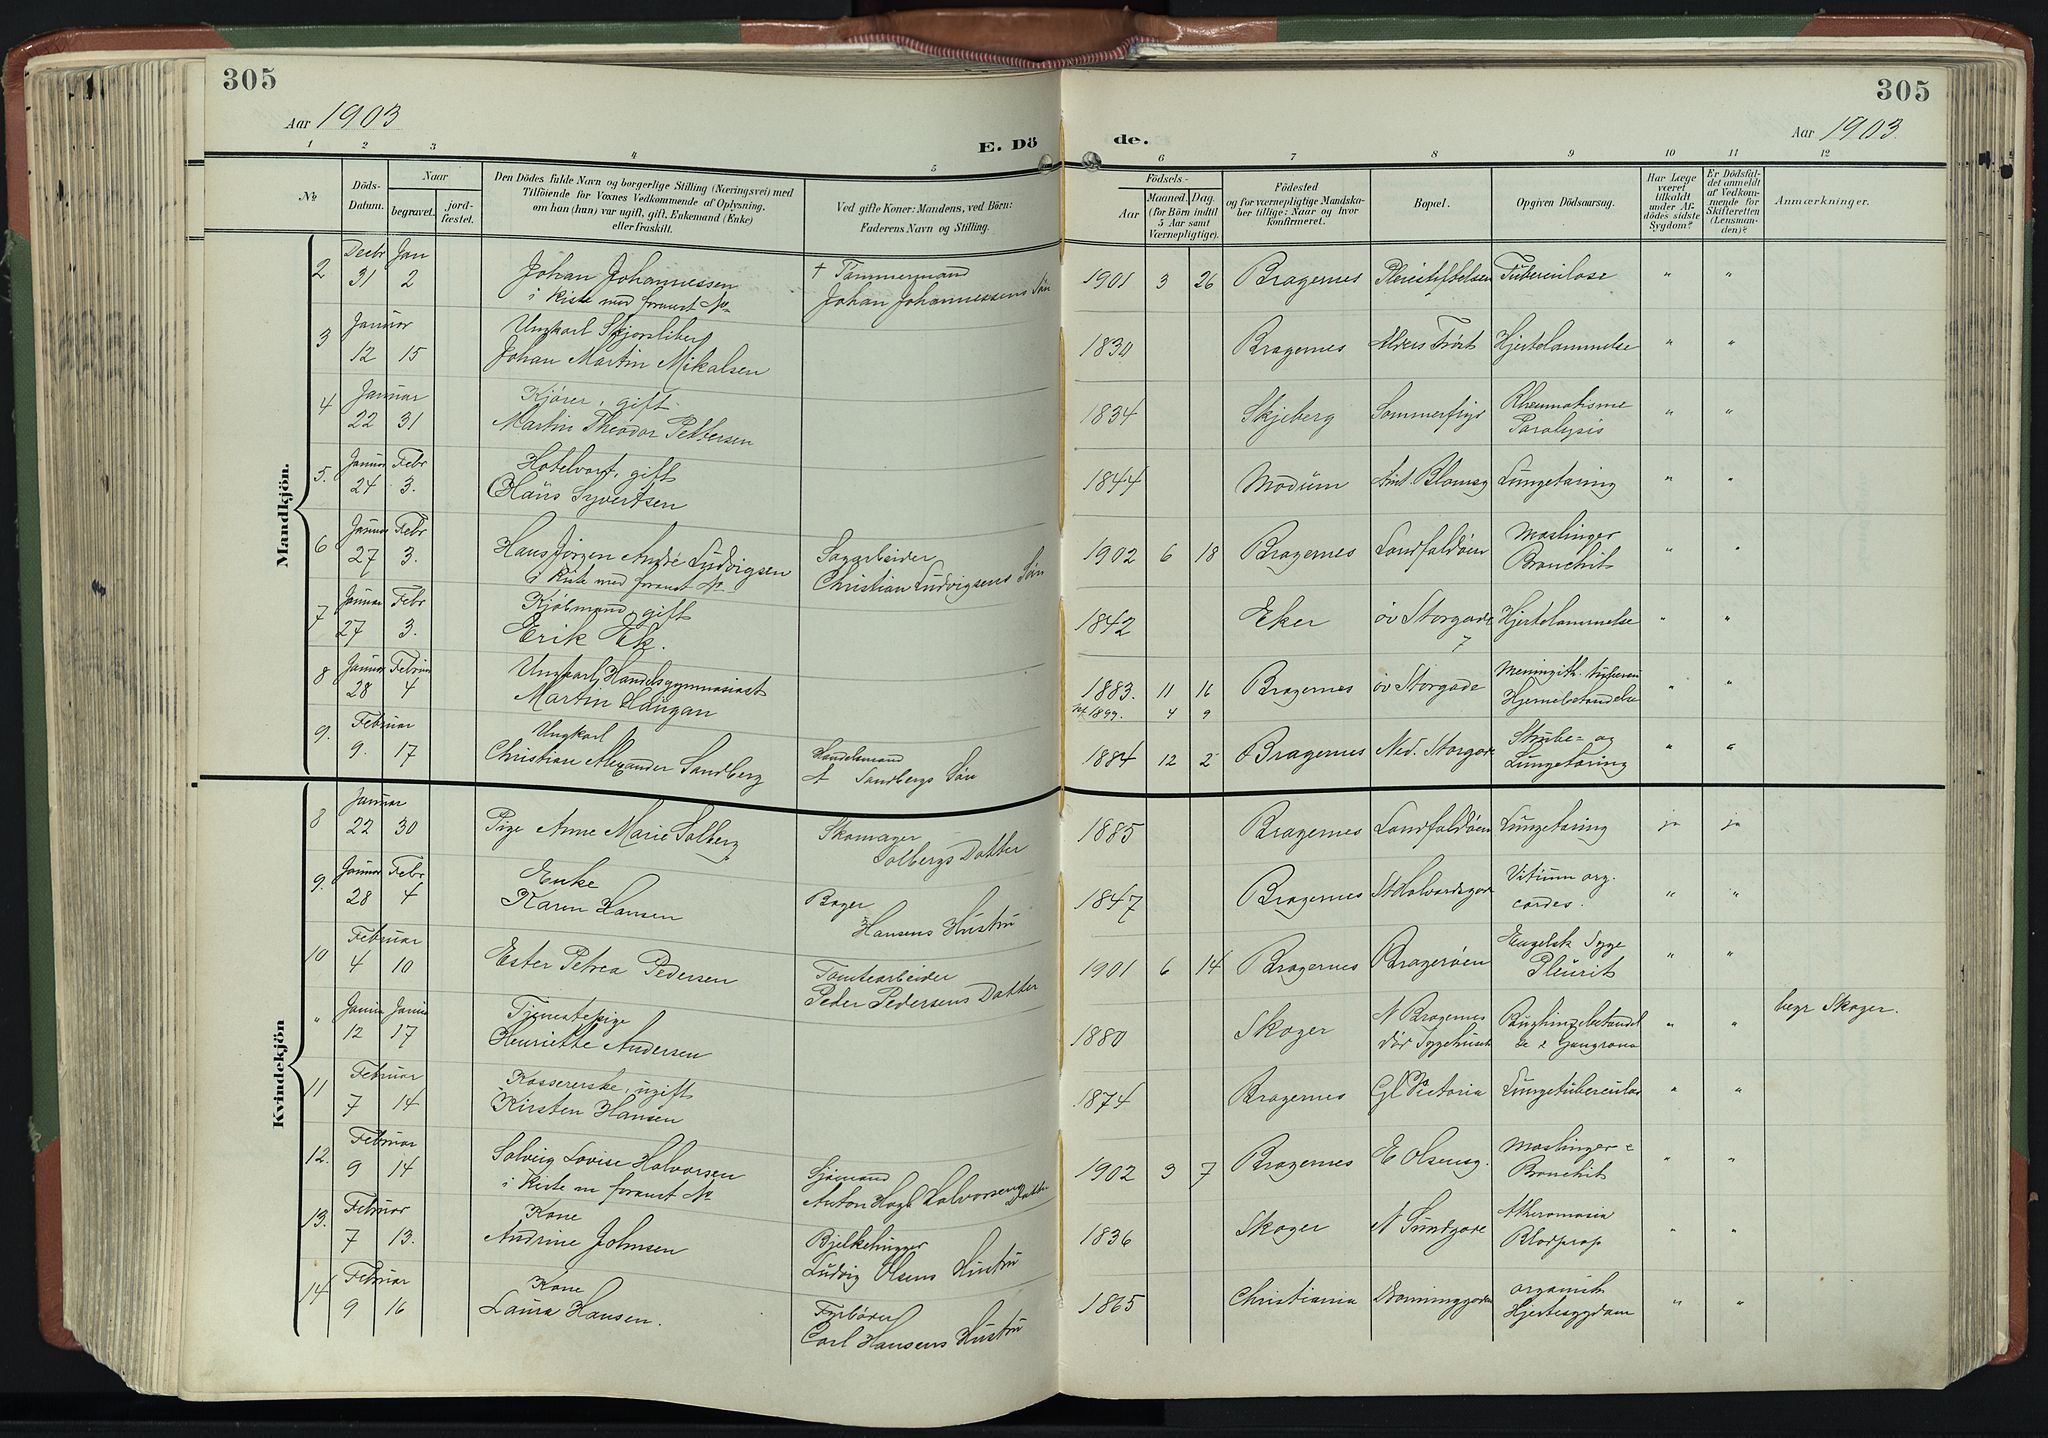 305
305
Aar 1903
Aar 1903
E. Dö
de.
1 2 3 4 5 6 7 8 9 10 11 12
№
Döds-
Datum.
Naar
begravet.
jord-
fæstet.
Den Dödes fulde Navn og borgerlige Stilling (Næringsvei) med
Tilföiende for Voxnes Vedkommende af Oplysning,
om han (hun) var ugift, gift, Enkemand (Enke)
eller fraskilt.
Ved gifte Koner: Mandens, ved Börn:
Faderens Navn og Stilling.
Födsels-
Aar
Maaned.
Dag.
(for Börn indtil
5 Aar samt
Værnepligtige).
Födested
og for værnepligtige Mandska-
ber tillige: Naar og hvor
konfirmeret.
Bopæl.
Opgiven Dödsaarsag.
Har Læge
været
tilkaldt
under Af-
dödes sidste
Sygdom?
Er Dödsfal-
det anmeldt
af Vedkom-
mende for
Skifteretten
(Lensman-
den)?
Anmærkninger.
Mandkjön.
2 Decbr 31 Jan 2
Johan Johannessen
i Kiste med foranst №
+ Tømmermand
Johan Johannessens Søn
1901 3 26 Bragernes Tuberculose " "
3 Januar 12 15
Ungkarl
Johan Martin Mikalsen
1830 Bragernes Alders Trøst Hjertelammelse " "
4 Januar 22 31
Kjører, gift.
Martin Theodor Pettersen
1834 Skjeberg Rheumatisme
Paralysis " "
5. Januar 24 Febr 3.
Hotelvært, gift
Hans Syvertsen
1844 Modum Blomsg Lungetæring " "
6 Januar 27 Febr 3.
Hans Jørgen André Ludvigsen
i Kiste med foranst №
Sagarbeider
Christian Ludvigsens Søn
1902 6 18 Bragernes Landfaldøen Mæslinger
Bronchit " "
7 Januar 27 Febr 3.
Kjøbmand, gift
Erik Ek.
1842 Eker øv Storgade
7 Hjertelammelse " "
8 Januar 28 Februar 4
Ungkarl, Handelsgymnasiast
Martin Haugan
1883. 11 16 Bragernes øv Storgade
Hjernebetændelse " "
1899. 4 9
9. Februar 9. 17
Ungkarl
Christian Alexander Sandberg
Handelsmand
A Sandbergs Søn
1884 12 2 Bragernes Ned. Storgade Strube- og
Lungetæring " "
Kvindekjön
8 Januar 22 30
Pige Anne Marie Solberg
Skomager
Solbergs Datter
1885 Bragernes Landfaldøen Lungetæring ja ja
9. Januar 28 Febr 4
Enke
Karen Hansen
Bager
Hansens Hustru
1847 Bragernes St Halvardsgade Vitium org.
cordes. " "
10 Februar 4 10
Ester Petrea Pedersen
Tomtearbeider
Peder Pedersens Datter
1901 6 14 Bragernes Bragerøen Engelsk Syge
Pleurit " "
" Januar 12 Januar 17
Tjenestepige
Henriette Andersen
1880 Skoger N Bragernes
Sygehus
" " begr Skoger.
11 Februar 7 14
Kassererske, ugift
Kirsten Hansen
1874 Bragernes Gl Victoria Lungetuberculose " "
12. Februar 9 14
Solveig Lovise Halvorsen
i Kiste m foranst №
Sjømand
Anton Halvorsens Datter
1902 3 7 Bragernes E Olsensg. Mæslinger
Bronchit " "
13. Februar 7 13.
Kone
Andrine Johnsen
Bjelkehugger
Ludvig Olsens Hustru
1836 Skoger N Sundgade
Blodprop " "
14 Februar 9 16
Kone
Laura Hansen.
Fyrbøder
Carl Hansens Hustru
1865 Christiania Dronninggaden organisk
Hjertesygdom " "